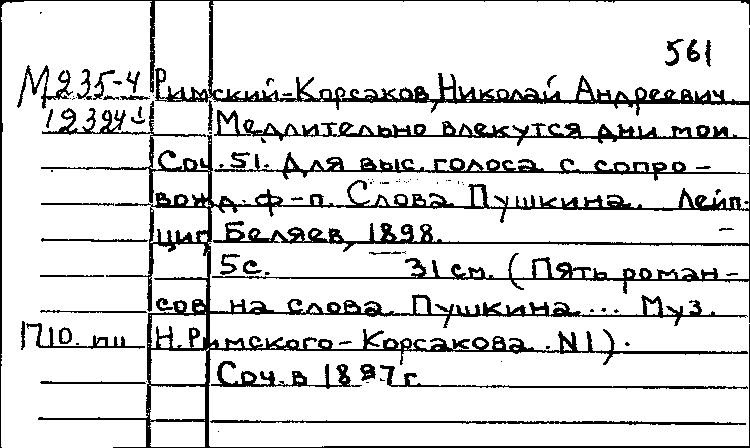 561
М 235-4 Римский-Корсаков, Николай Андреевич.
Медлительно влекутся дни мои.
Соч. 51. Для выс. голоса с сопро-
вожд. ф-п. Слова Пушкина. Лейп-
циг, Беляев, 1898.
5с. 31 см. (Пять роман-
сов на слова Пушкина ... Муз.
1710. пп Н. Римского-Корсакова. N1).
Соч. в 1897 г.